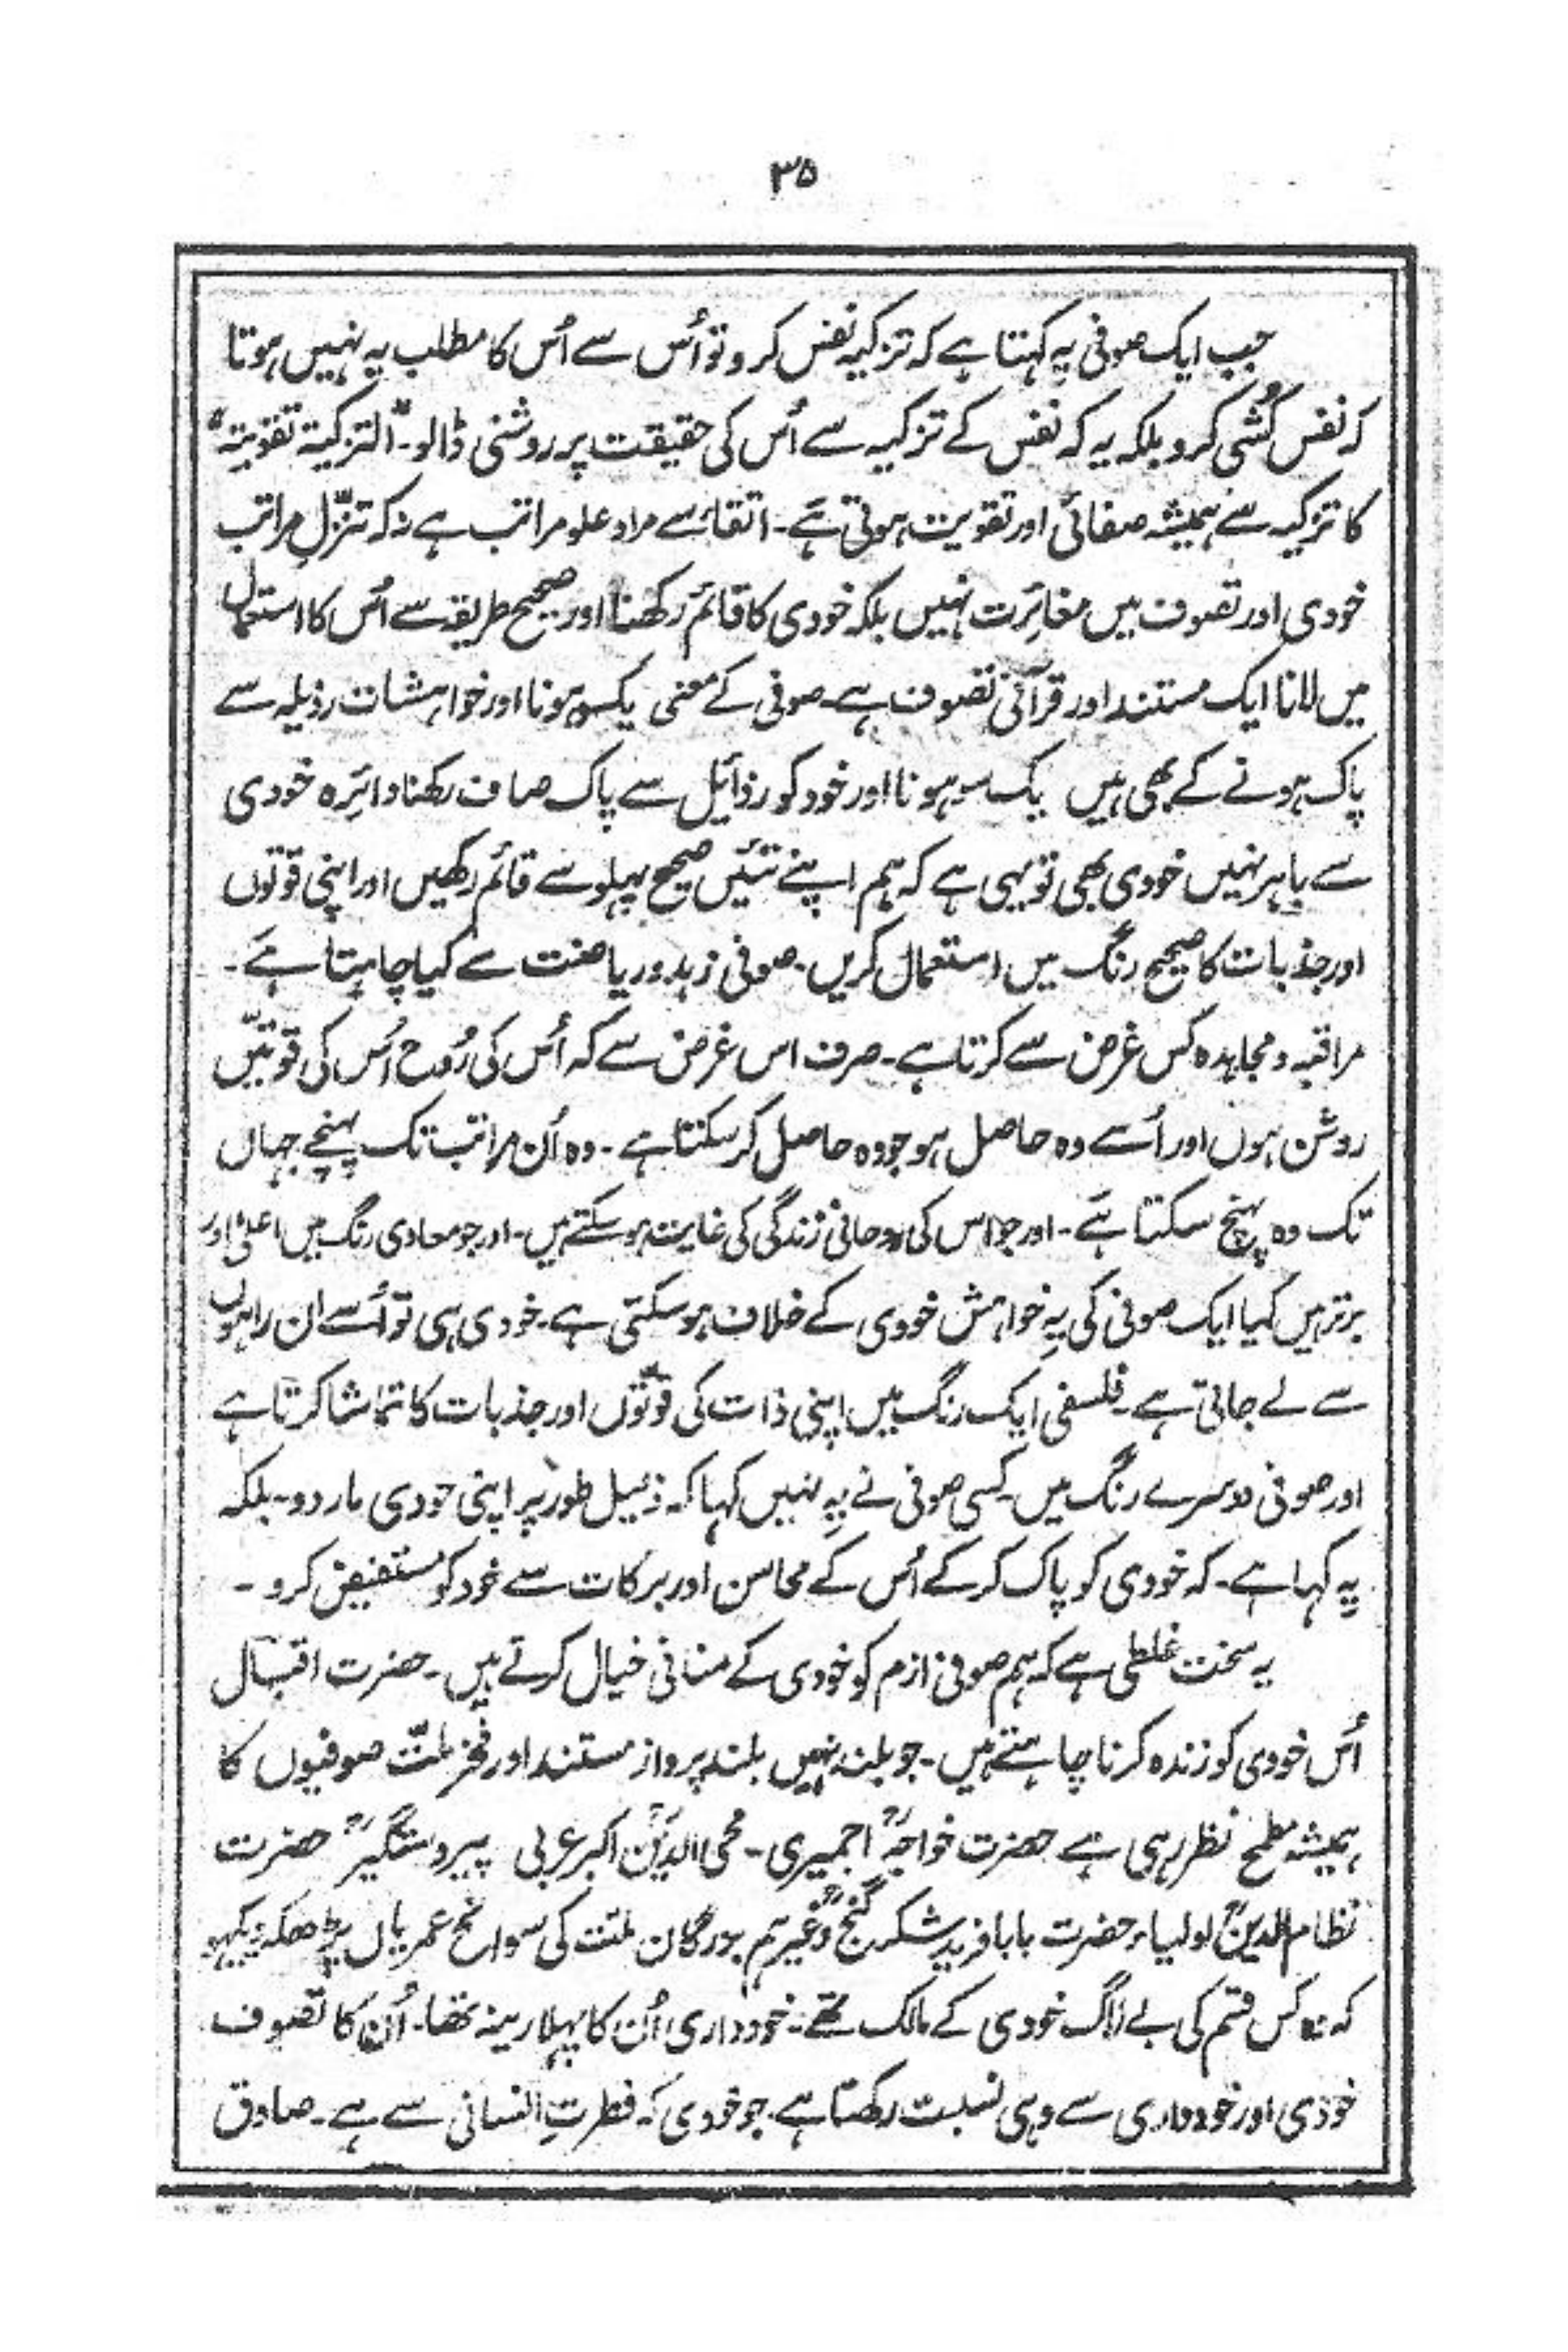 ۳۵
جب ایک صوفی یہ کہتا ہے کہ تزکیہ نفس کرو تو اُس سے اُس کا مطلب یہ نہیں ہوتا
کہ نفس کُشی کرو بلکہ یہ کہ نفس کے تزکیہ سے اُس کی حقیقت پر روشنی ڈالو۔ "التزکیۃ تقویتہ"
کا تزکیہ سے ہمیشہ صفائی اور تقویت ہوتی ہے۔ اتقاء سے مراد علو مراتب ہے نہ کہ تنزّلِ مراتب
خودی اور تصوف میں مغائرت نہیں بلکہ خودی کا قائم رکھنا اور صحیح طریقہ سے اُس کا استعمال
میں لانا ایک مستند اور قرآنی تصوف ہے۔ صوفی کے معنی یکسو ہونا اور خواہشات رذیلہ سے
پاک ہونے کے بھی ہیں یکسو ہونا اور خود کو رذائیل سے پاک صاف رکھنا دائرہ خودی
سے باہر نہیں خودی بھی تو یہی ہے کہ ہم اپنے تئیں صحیح پہلو سے قائم رکھیں اور اپنی قوتوں
اور جذبات کا صحیح رنگ میں استعمال کریں۔ صوفی زہد و ریاضت سے کیا چاہتا ہے۔
مراقبہ و مجاہدہ کس غرض سے کرتا ہے۔ صرف اس غرض سے کہ اُس کی رُوح اُس کی قوتیں
روشن ہوں اور اُسے وہ حاصل ہو جو وہ حاصل کر سکتا ہے۔ وہ اُن مراتب تک پہنچے جہاں
تک وہ پہنچ سکتا ہے۔ اور جو اس کی روحانی زندگی کی غایت ہو سکتے ہیں۔ اور جو معادی رنگ میں اعلیٰ اور
برتر ہیں کیا ایک صوفی کی یہ خواہش خودی کے خلاف ہو سکتی ہے۔ خودی ہی تو اُسے ان راہوں
سے لے جاتی ہے۔ فلسفی ایک رنگ میں اپنی ذات کی قوتوں اور جذبات کا تماشا کرتا ہے
اور صوفی دوسرے رنگ میں۔ کسی صوفی نے یہ نہیں کہا کہ ذلیل طور پر اپنی خودی مار دو۔ بلکہ
یہ کہا ہے۔ کہ خودی کو پاک کر کے اُس کے محاسن اور برکات سے خود کو مستفیض کرو۔
یہ سخت غلطی ہے کہ ہم صوفی ازم کو خودی کے منافی خیال کرتے ہیں۔ حضرت اقبال
اُس خودی کو زندہ کرنا چاہتے ہیں۔ جو بلند نہیں بلند پرواز مستند اور فخرِ ملّت صوفیوں کا
ہمیشہ مطمح نظر رہی ہے حضرت خواجہؒ اجمیری۔ محی الدینؒ اکبر عربی پیر دستگیرؒ حضرت
نظام الدینؒ اولیاء حضرت بابا فرید شکر گنجؒ وغیرہم بزرگان ملت کی سوانح عمریاں پڑھکر دیکھو
کہ وہ کس قسم کی بے لاگ خودی کے مالک تھے۔ خودداری اُن کا پہلا زینہ تھا۔ اُن کا تصوف
خودی اور خودداری سے وہی نسبت رکھتا ہے۔ جو خودی کہ فطرتِ انسانی سے ہے۔ صادق